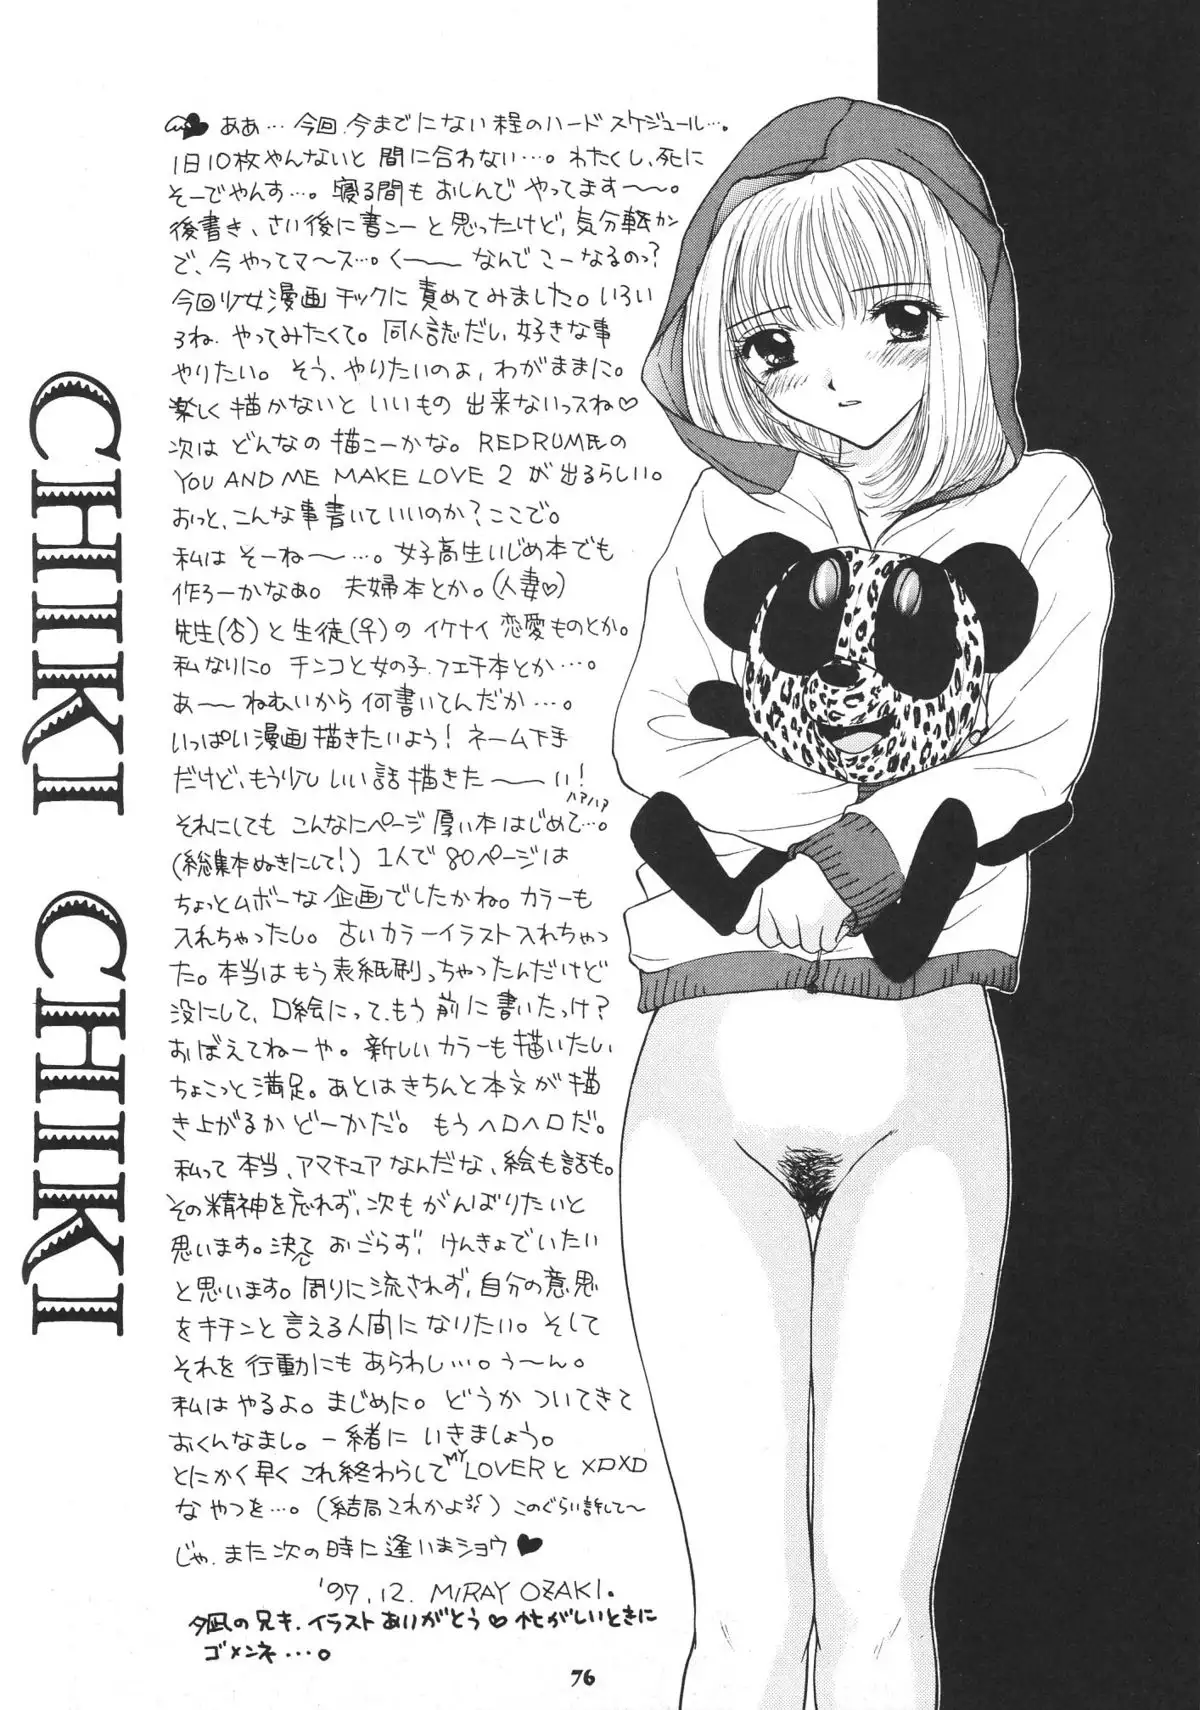 CHIKI CHIKI
ああ…今回、今までにない程のハードスケジュール…。
1日10枚やんないと間に合わない…。わたくし、死に
そーでやんす…。寝る間もおしんでやってます〜〜。
後書き、さい後に書こーと思ったけど、気分転かン
で、今やってマ〜ス…。く〜〜なんでこーなるのっ?
今回少女漫画チックに責めてみました。いろい
ろね、やってみたくて。同人誌だし、好きな事
やりたい。そう、やりたいのよ、わがままに。
楽しく描かないといいもの出来ないっスね♡
次はどんなの描こーかな。REDRUM氏の
YOU AND ME MAKE LOVE 2が出るらしい。
おっと、こんな事書いていいのか?ここで。
私はそーね〜〜…。女子高生いじめ本でも
作ろーかなぁ。夫婦本とか。(人妻♡)
先生(♂)と生徒(♀)のイケナイ恋愛ものとか。
私なりに。チンコと女の子、フェチ本とか…。
あ〜〜ねむいから何書いてんだか…。
いっぱい漫画描きたいよう!ネーム下手
だけど、もう少しいい話描きた〜〜い!
ハァハァ
それにしてもこんなにページ厚い本はじめて…。
(総集本ぬきにして!)1人で80ページは
ちょっとムボーな企画でしたかね。カラーも
入れちゃったし。古いカラーイラスト入れちゃっ
た。本当はもう表紙刷っちゃったんだけど
没にして、口絵にって、もう前に書いたっけ?
おぼえてねーや。新しいカラーも描いたしい
ちょこっと満足。あとはきちんと本文が描
き上がるかどーかだ。もうヘロヘロだ。
私って本当、アマチュアなんだな、絵も話も。
その精神を忘れず、次もがんばりたいと
思います。決しておごらず!けんきょでいたい
と思います。周りに流されず、自分の意思
をキチンと言える人間になりたい。そして
それを行動にもあらわし…。う〜ん。
私はやるよ。まじめた。どうかついてきて
おくんなまし。一緒にいきましょう。
とにかく早くこれ終わらしてMY LOVERとXDXD
なやつを…。(結局これかよ)このぐらい許して〜
じゃ、また次の時に逢いまショウ♥
'97.12. MIRAY OZAKI.
夕凪の兄キ、イラストありがとう♡忙がしいときに
ゴメンネ…。
76